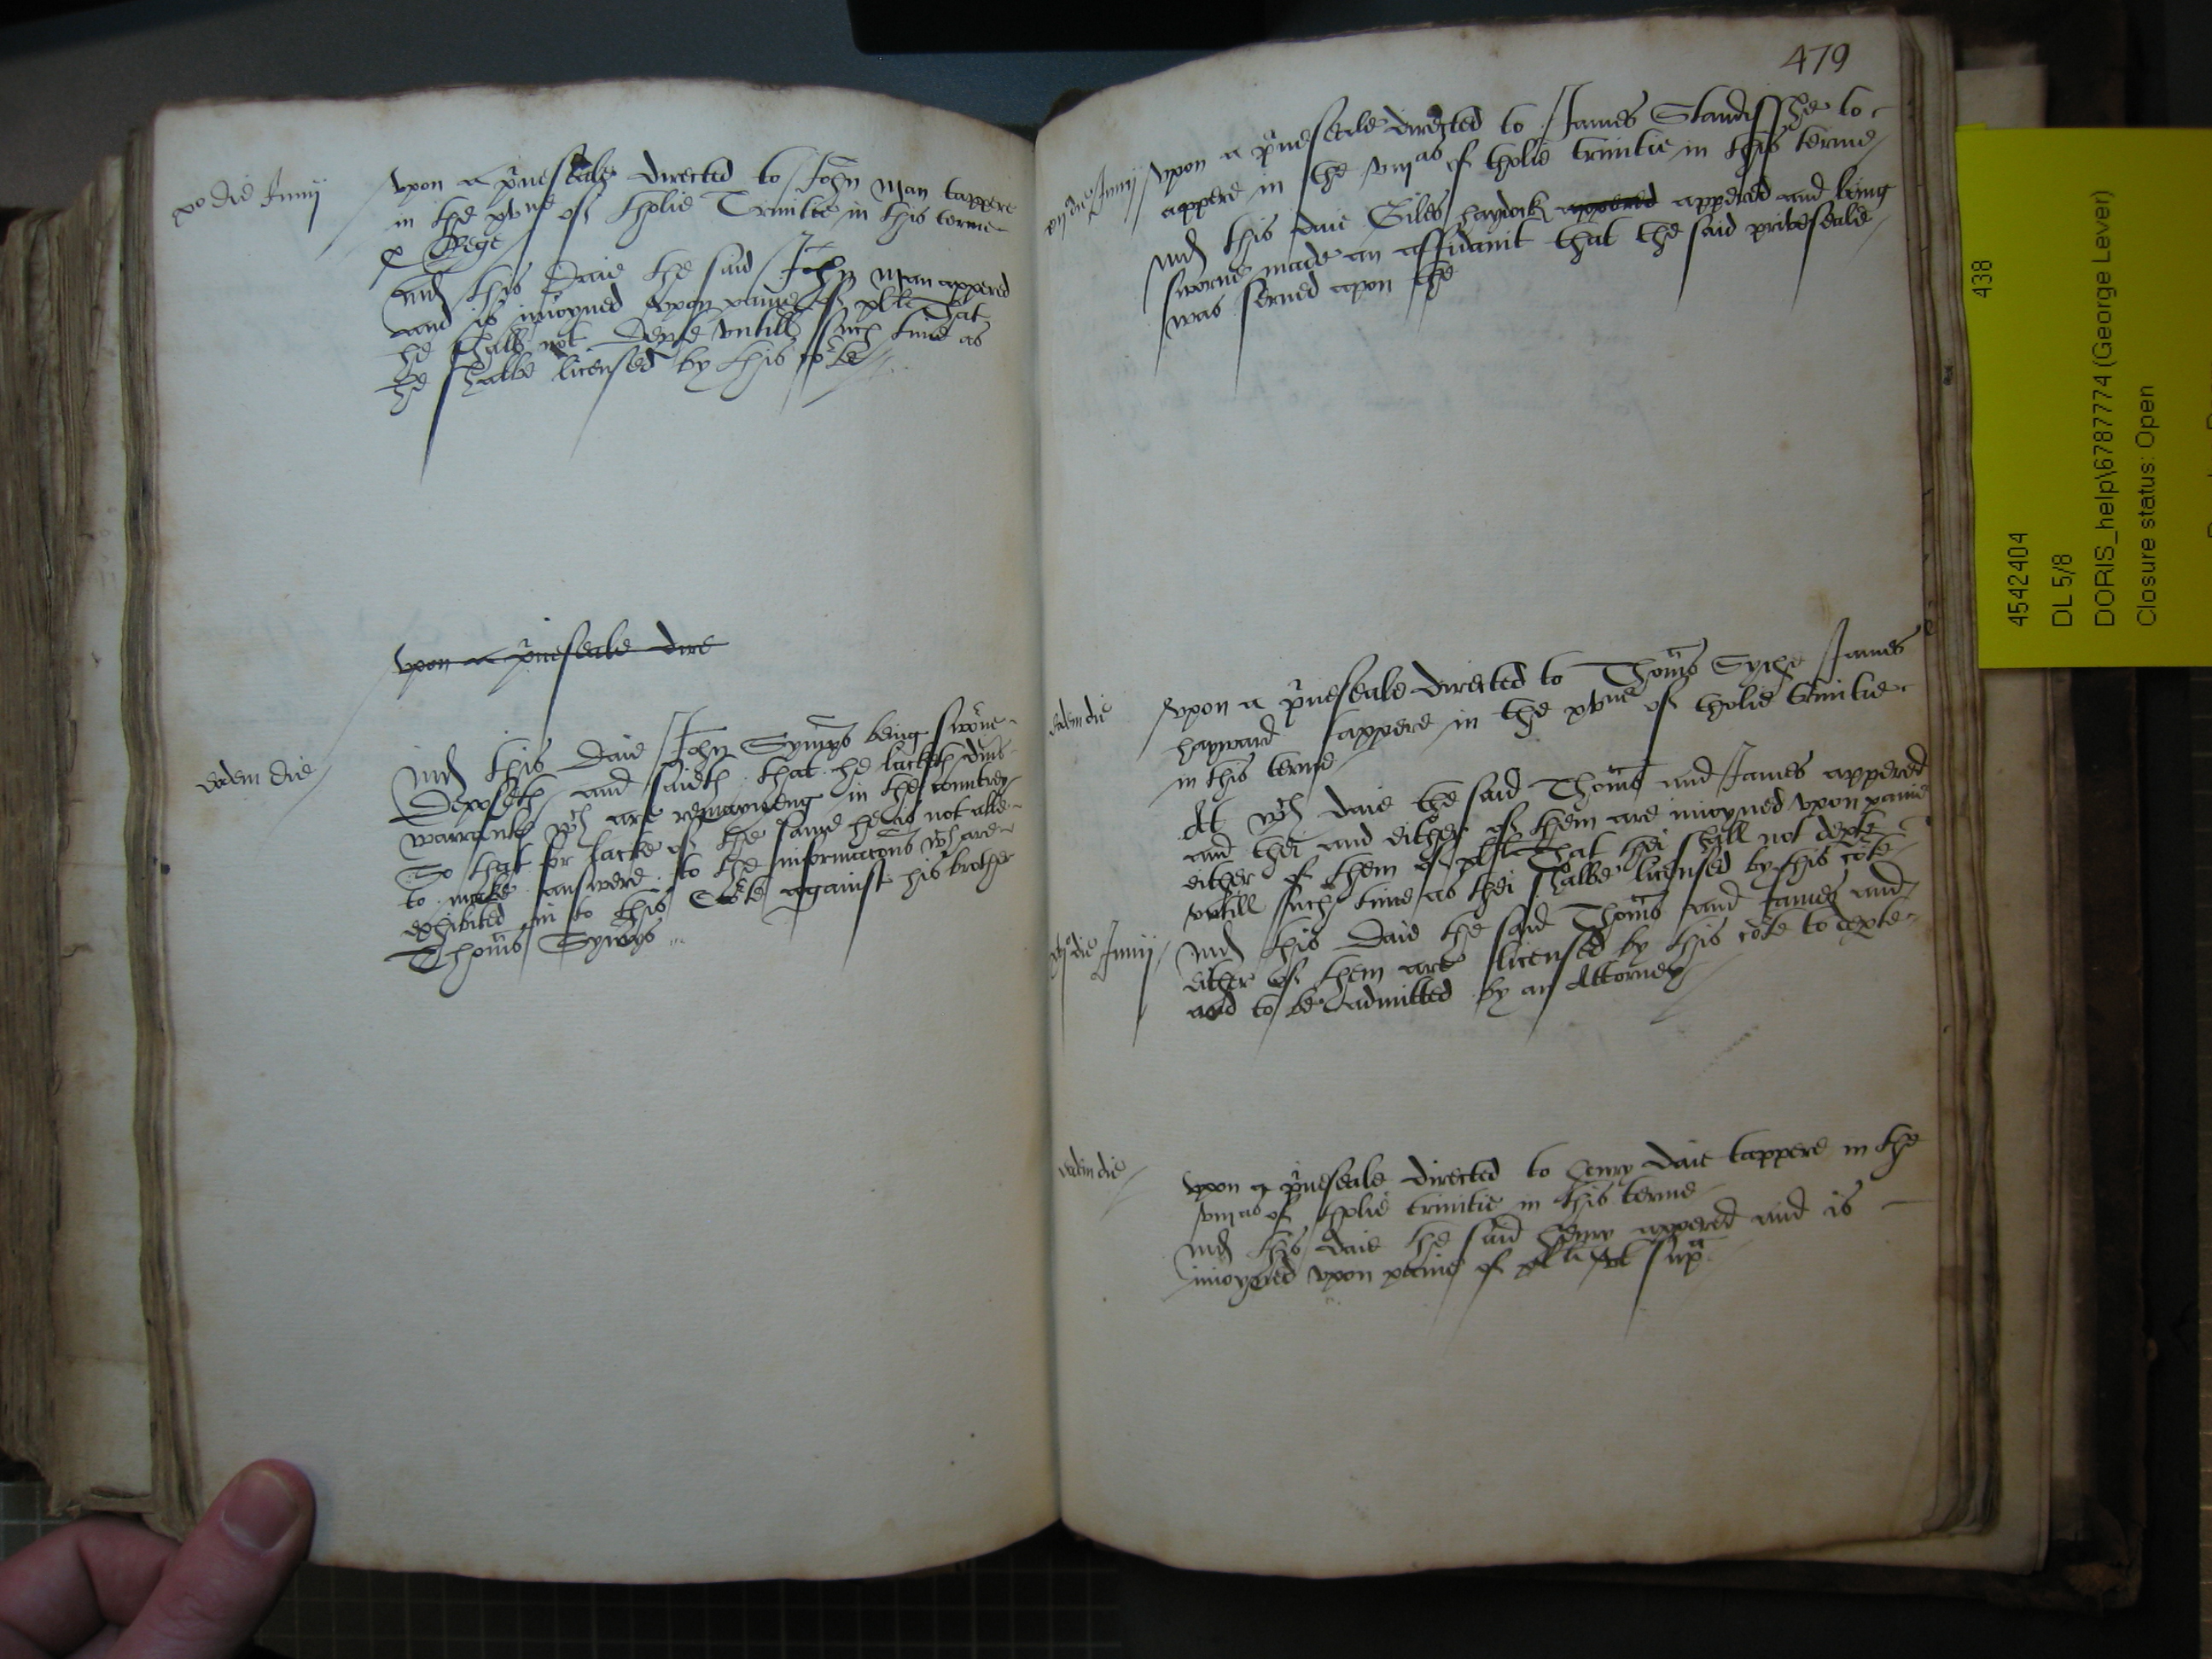 xo die Junij
upon a p'veseale directed to John Man tappere
in the xvne of tholie Trinitie in this terme
p Rege
Md this Daie the said John Man appered
and is inioyned upon paine of xl li That
he shall not Depte untill such time as
he shalbe licensed by this cote
upon a p'veseale dire
eodem die
Md this Daie John Symps being sworne
Deposeth and saieth that he lacketh divs
warrants wch are remayneng in the countrey
So that for lacke of the same he is not able
to make answere to the informacons wch are
exhibited in to this Cote against his brother
Thoms Symps
479
die Junij
upon a p'veseale directed to James Standisshe to
appere in the viijas of tholie trinitie in this terme
Md this daie Giles haydok appered appered and being
sworne made an affidavit that the said priveseale
was served apon the
eodem die
upon a p'veseale directed to Thoms Syche James
hayward tappere in the xvne of tholie trinitie
in this terme
At wch daie the said Thoms and James appered
and thei and either of them are inioyned upon paine
either of them of xl li That thei shall not depte
untill such time as thei shalbe licensed by this cote
die Junij
Md this Daie the said Thoms and James and
either of them are licensed by this cote to depte
and to be admitted by an Attorney
eodem die
upon a p'veseale directed to henry daie tappere in the
viijas of tholie trinitie in this terme
Md this daie the said henry appered and is
inioyned upon paine of xl li ut supa
4542404 438
DL 5/8
DORIS_help\6787774 (George Lever)
Closure status: Open